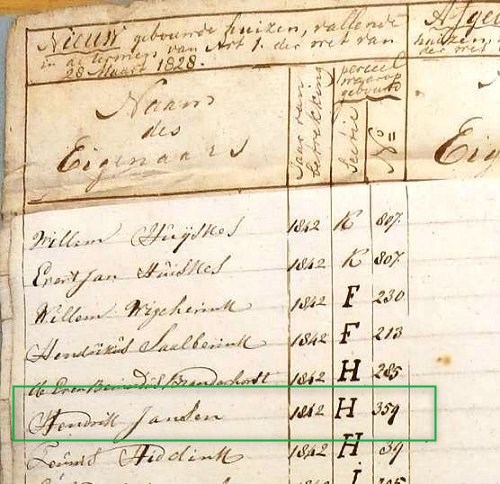 Nieuw gebouwde huizen, vallende
in de termen van Art 1. der wet van
28 Maart 1828.
Afge
huizen,
der wet
Naam
des
Eigenaars
Jaar van
betrekking
perceel
waarop
gebouwd
Sectie
No
Eig
Willem Huijskes 1842 K 807
Evert Jan Huiskes 1842 K 807
Willem Wigcherink 1842 F 230
Hendrikus Saalberink 1842 F 213
de Erven Brandehorst 1842 H 285
Hendrik Jansen 1842 H 359
Teunis Hiddink 1842 H 39